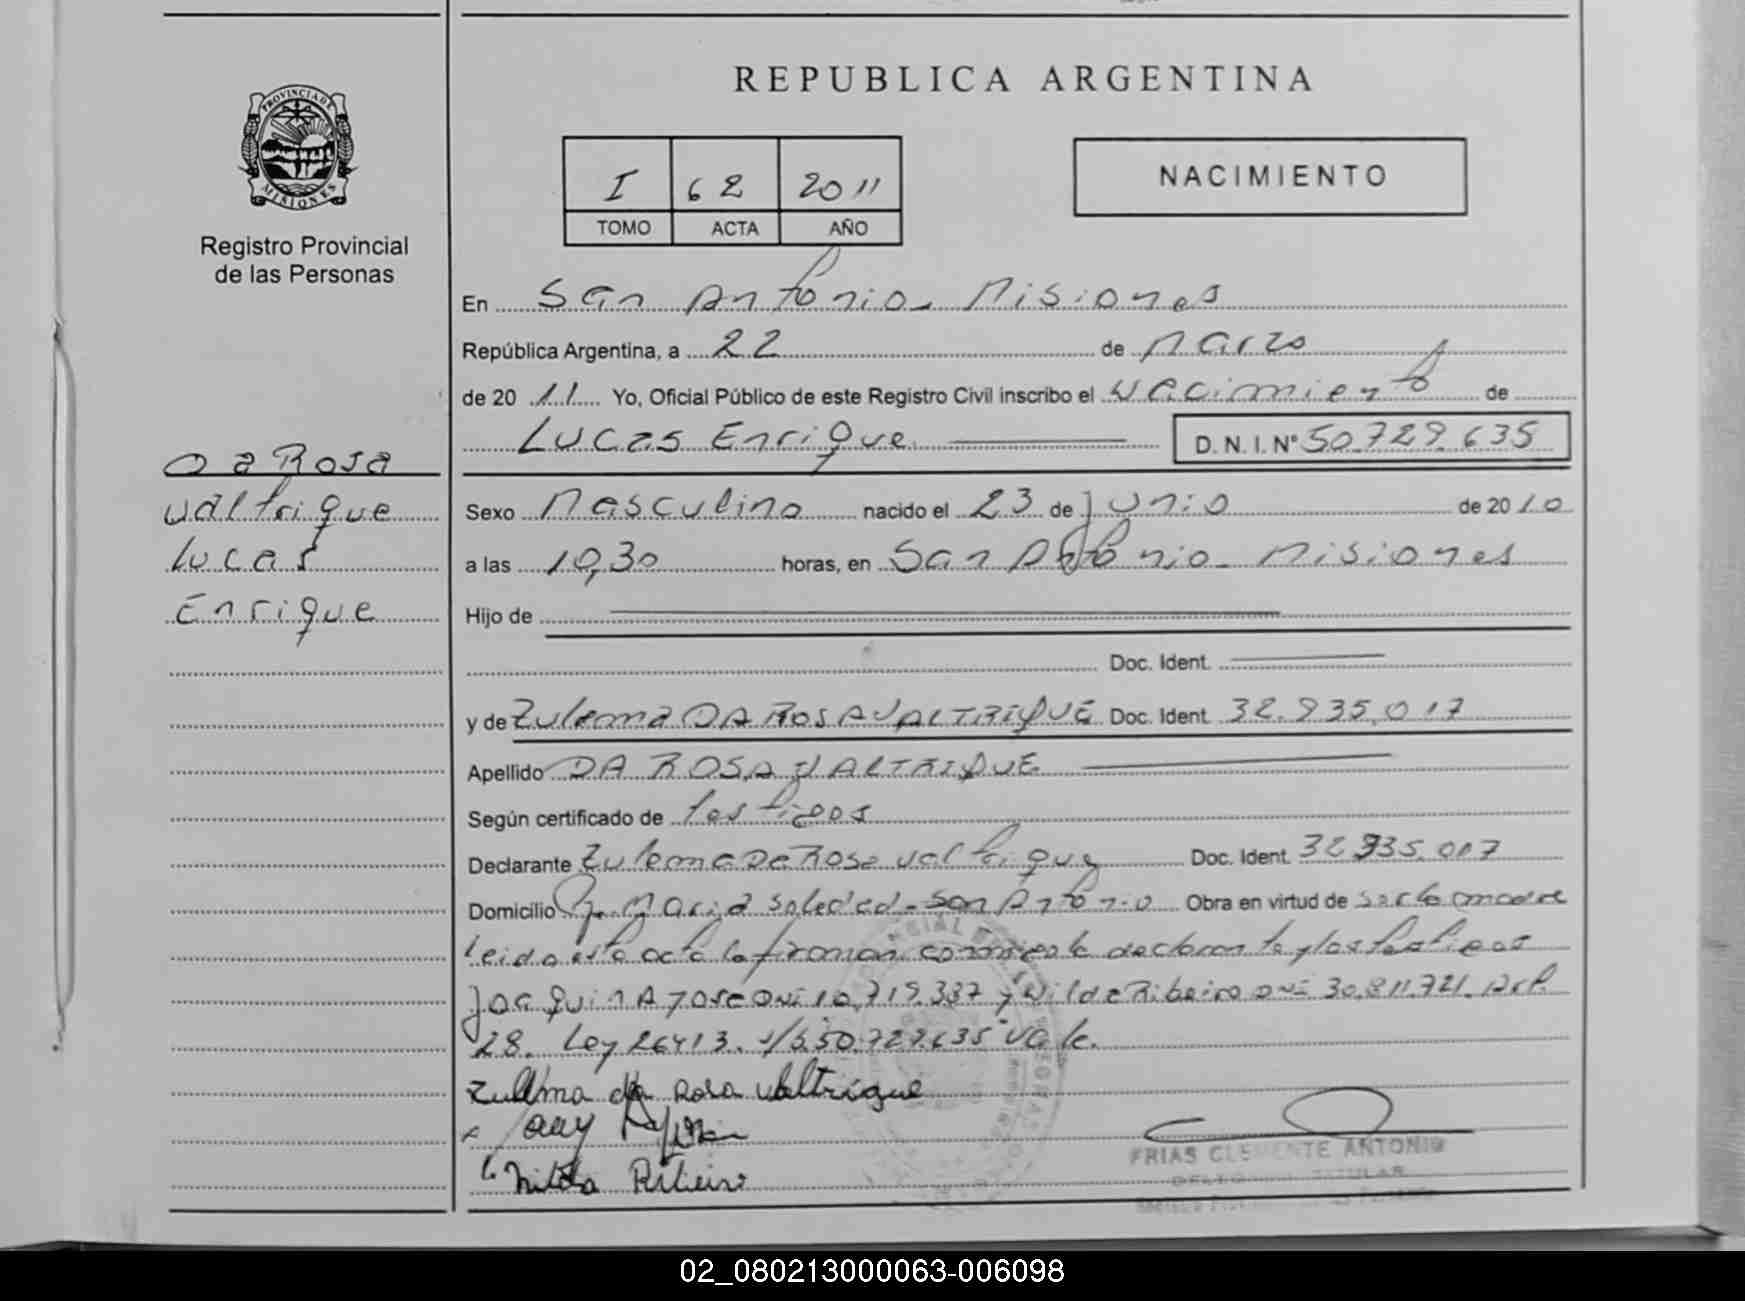 REPUBLICA ARGENTINA
PROVINCIA DE
MISIONES
Registro Provincial
de las Personas
I 62 2011
TOMO ACTA AÑO
NACIMIENTO
En San Antonio - Misiones
República Argentina, a 22 de Marzo
de 20 11 Yo, Oficial Público de este Registro Civil inscribo el Nacimiento de
Lucas Enrique D. N. I. Nº 50.729.635
Da Rosa
Valtrique
Lucas
Enrique
Sexo Masculino nacido el 23 de Junio de 20 10
a las 10,30 horas, en San Antonio - Misiones
Hijo de
Doc. Ident.
y de Zulema DA ROSA VALTRIQUE Doc. Ident. 32.935.017
Apellido DA ROSA VALTRIQUE
Según certificado de testigos
Declarante Zulema Da Rosa Valtrique Doc. Ident. 32.935.017
Domicilio Maria Soledad - San Antonio Obra en virtud de madre
Leida esta acta la firman conmigo la declarante y los testigos
Joaquin 10.719.387 y Nilda Ribeiro DNI 30.811.721. Art.
28. Ley 26413. S/b. 50.729.635 Vale.
Zulema da Rosa Valtrique
Nilda Ribeiro
FRIAS CLEMENTE ANTONIO
DELEGADO TITULAR
02_080213000063-006098